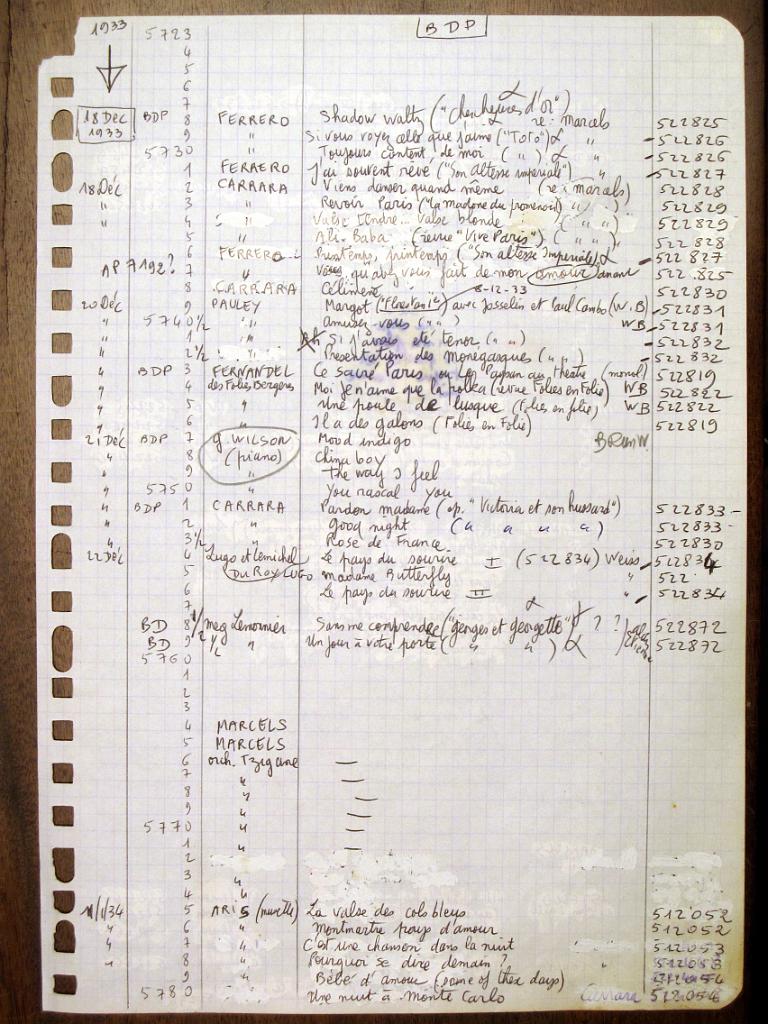 1933 5723 BDP
4
5
6
7
18 Déc 1933 BDP 8 FERRERO Shadow waltz ("Chercheuses d'or") re: marcels 522825
9 " Si vous voyez celle que j'aime ("Toto") " 522826
5730 " Toujours content de moi ( " ) " 522826
1 FERRERO J'ai souvent rêvé ("Son altesse impériale") 522827
18 Déc 2 CARRARA Viens danser quand même (re: marcels) 522828
" 3 " Revoir Paris ("la madone du promenoir") " 522829
" 4 " Valse tendre... Valse blonde ( " " ) 522829
" 5 " Ali-Baba (revue "Vive Paris") ( " " ) 522828
6 FERRERO Printemps, printemps ("Son altesse Impériale") 522827
AP 7192? 7 " qu'avez vous fait de mon amour amant 522825
8 CARRARA Célimène 8-12-33 522830
20 Déc 9 PAULEY Margot ("Florestan 1er") avec Josselin et Paul Cambo (W.B) 522831
" 5740 1/2 " Amusez-vous ( " " ) WB 522831
" 1 " Ah si j'avais été tenor ( " " ) 522832
" 2 1/2 " Présentation des monegasques ( " " ) 522832
" BDP 3 FERNANDEL Ce sacré Paris ou Un paysan au théatre (monol) 522819
" 4 des Folies Bergères Moi je n'aime que la polka (revue Folies en Folie) WB 522822
" 5 " Une poule de lusque (Folies en folie) WB 522822
" 6 " Il a des galons (Folies en Folie) 522819
21 Déc BDP 7 G. WILSON Mood indigo BRUNW.
" 8 (piano) China boy
" 9 " The way I feel
" 5750 " You rascal you
" BDP 1 CARRARA Pardon madame (op. "Victoria et son hussard") 522833
" 2 " Good night ( " " " " ) 522833
" 3 1/2 " Rose de France 522830
22 Déc 4 Lugo et Lemichel Le pays du sourire I (522834) Weiss 522834
5 DU ROY LUGO Madame Butterfly " 522
6 Le pays du sourire II " 522834
7
BD 8 1/2 Meg Lemonnier Sans me comprendre ("Georges et Georgette") ? ? 522872
BD 9 1/2 " Un jour à votre porte ( " " ) 522872
5760
1
2
3
4 MARCELS
5 MARCELS
6 orch. Tzigane —
7 " —
8 " —
9 " —
5770 " —
1 " —
2
3 "
4 "
11/1/34 5 ARIS (musette) La valse des cols bleus 512052
" 6 " Montmartre pays d'amour 512052
" 7 " C'est une chanson dans la nuit 512053
" 8 " Pourquoi se dire demain? 512053
9 " Bébé d'amour (some of thex days) 512054
5780 " Une nuit à Monte Carlo Carrara 512054